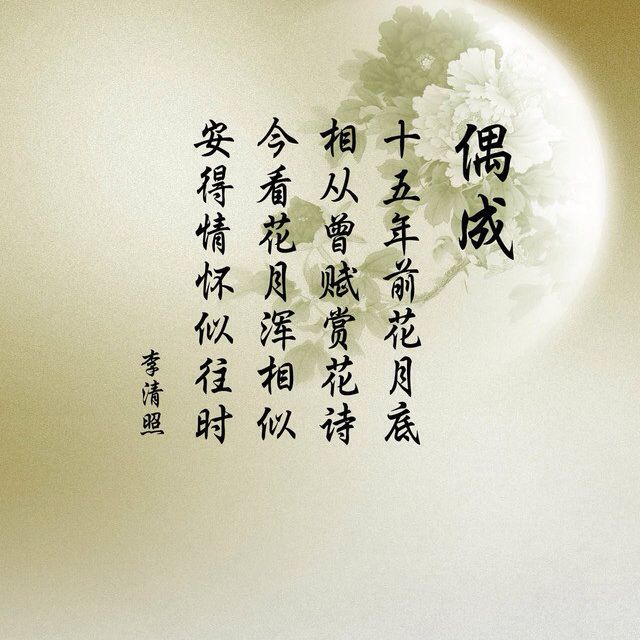 偶成
十五年前花月底
相从曾赋赏花诗
今看花月浑相似
安得情怀似往时
李清照